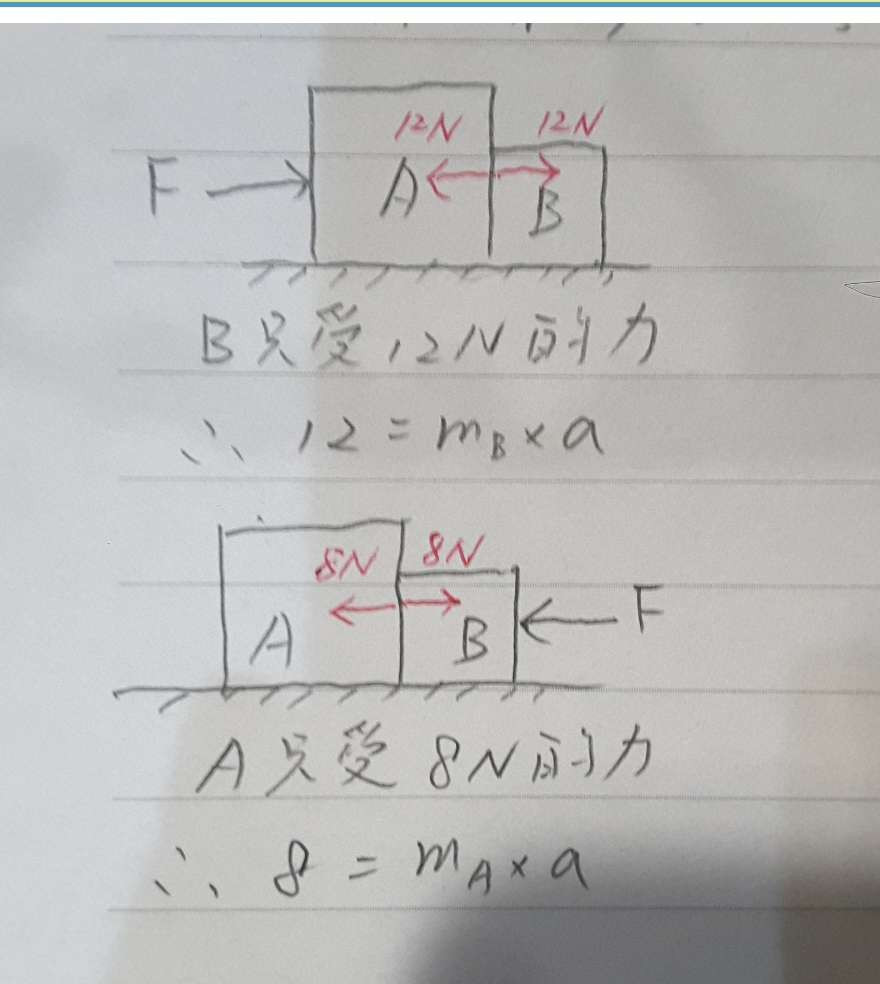 12N 12N
F A B
B只受12N的力
∴ 12 = mB × a
8N 8N
A B F
A只受8N的力
∴ 8 = mA × a